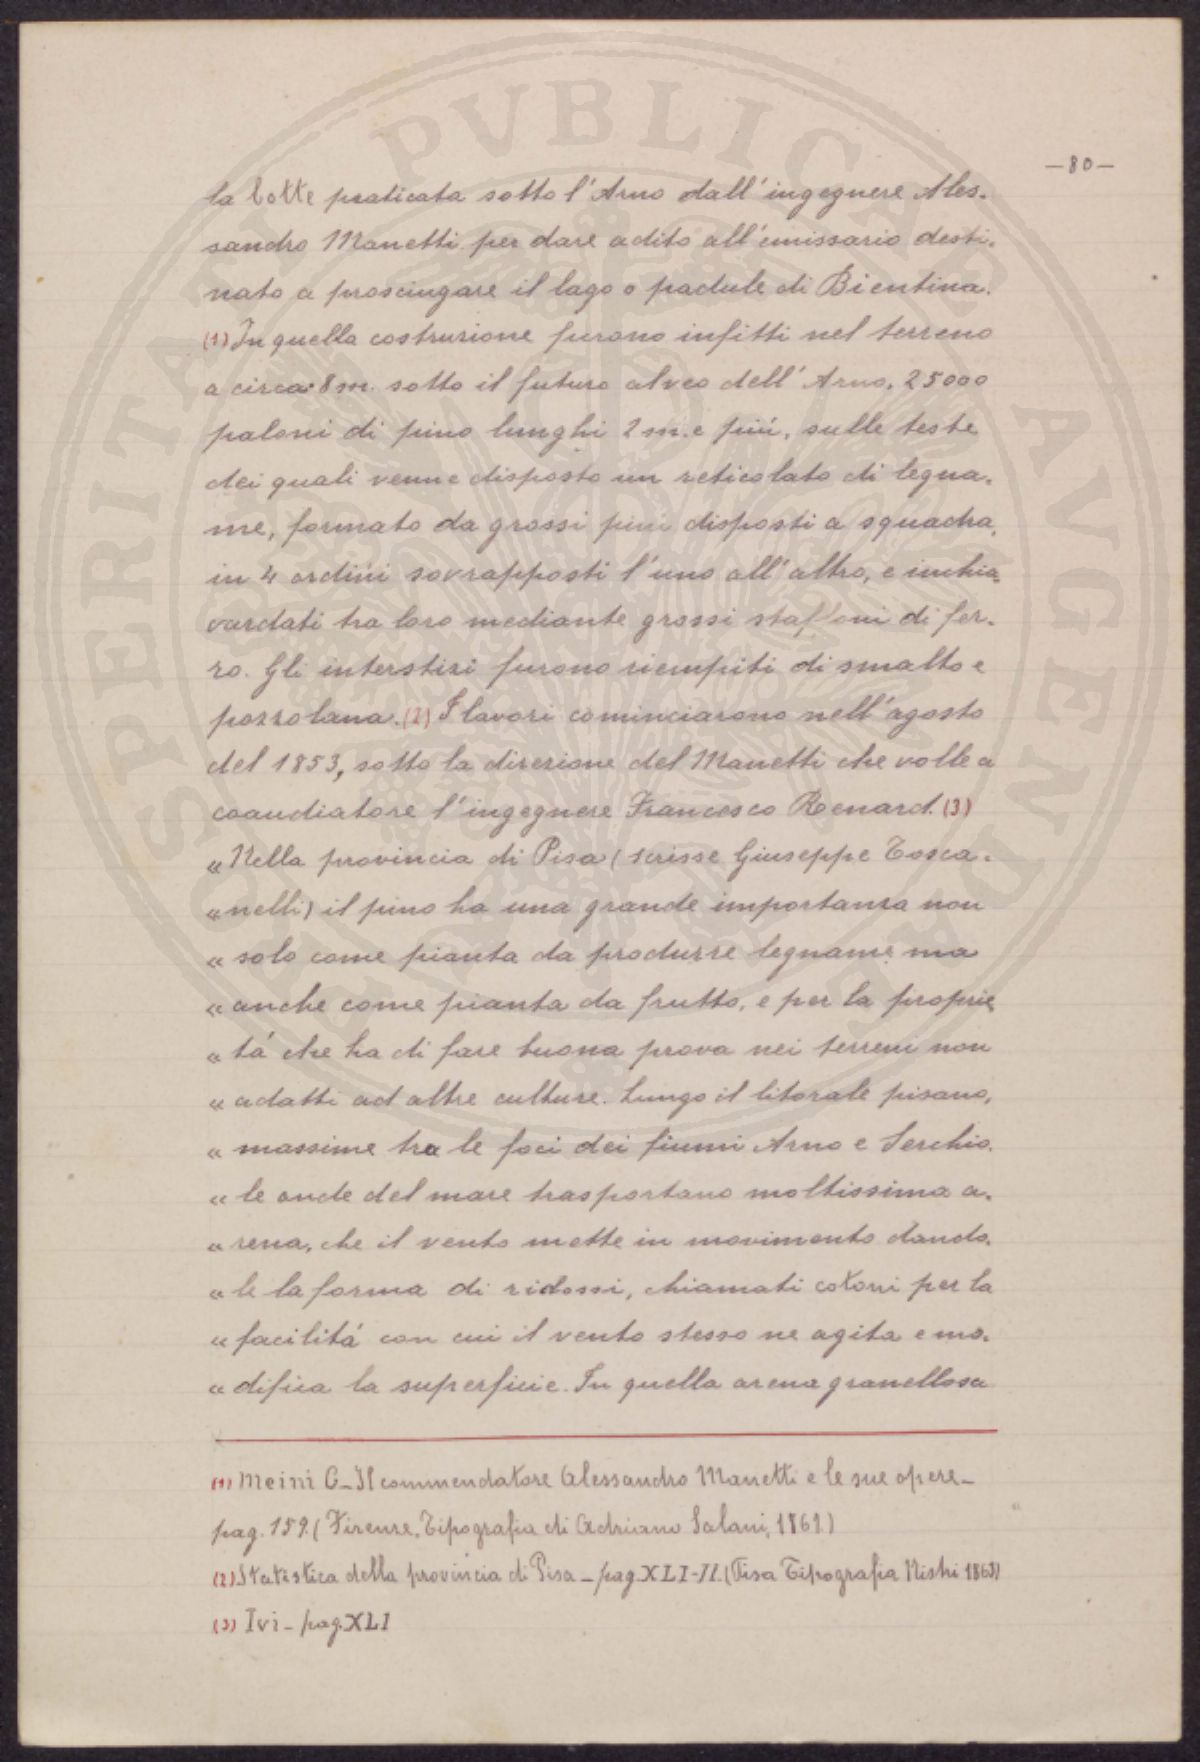 —80—
la botte praticata sotto l'Arno dall'ingegnere Ales-
sandro Manetti per dare adito all'emissario desti-
nato a prosciugare il lago o padule di Bientina.
(1) In quella costruzione furono infitti nel terreno
a circa 8 m. sotto il futuro alveo dell'Arno, 25000
paloni di pino lunghi 2 m. e più, sulle teste
dei quali venne disposto un reticolato di legna-
me, formato da grossi pini disposti a squadra,
in 4 ordini sovrapposti l'uno all'altro, e inchia-
vardati tra loro mediante grossi staffoni di fer-
ro. Gli interstizi furono riempiti di smalto e
pozzolana. (2) I lavori cominciarono nell'agosto
del 1853, sotto la direzione del Manetti che volle a
coaudiatore l'ingegnere Francesco Renard. (3)
« Nella provincia di Pisa (scrisse Giuseppe Tosca-
« nelli) il pino ha una grande importanza non
« solo come pianta da produrre legname ma
« anche come pianta da frutto, e per la proprie
« tá che ha di fare buona prova nei terreni non
« adatti ad altre culture. Lungo il litorale pisano,
« massime tra le foci dei fiumi Arno e Serchio.
« le onde del mare trasportano moltissima a-
« rena, che il vento mette in movimento dando-
« le la forma di ridossi, chiamati cotoni per la
« facilitá con cui il vento stesso ne agita e mo-
« difica la superficie. In quella arena granellosa
(1) Meini C_ Il commendatore Alessandro Manetti e le sue opere_
pag. 159. (Firenze, Tipografia di Adriano Salani, 1869.)
(2) Statistica della provincia di Pisa _ pag. XLI-II. (Pisa Tipografia Nistri 1863)
(3) Ivi _ pag. XLI
PROSPERITATI PVBLICAE AVGENDAE